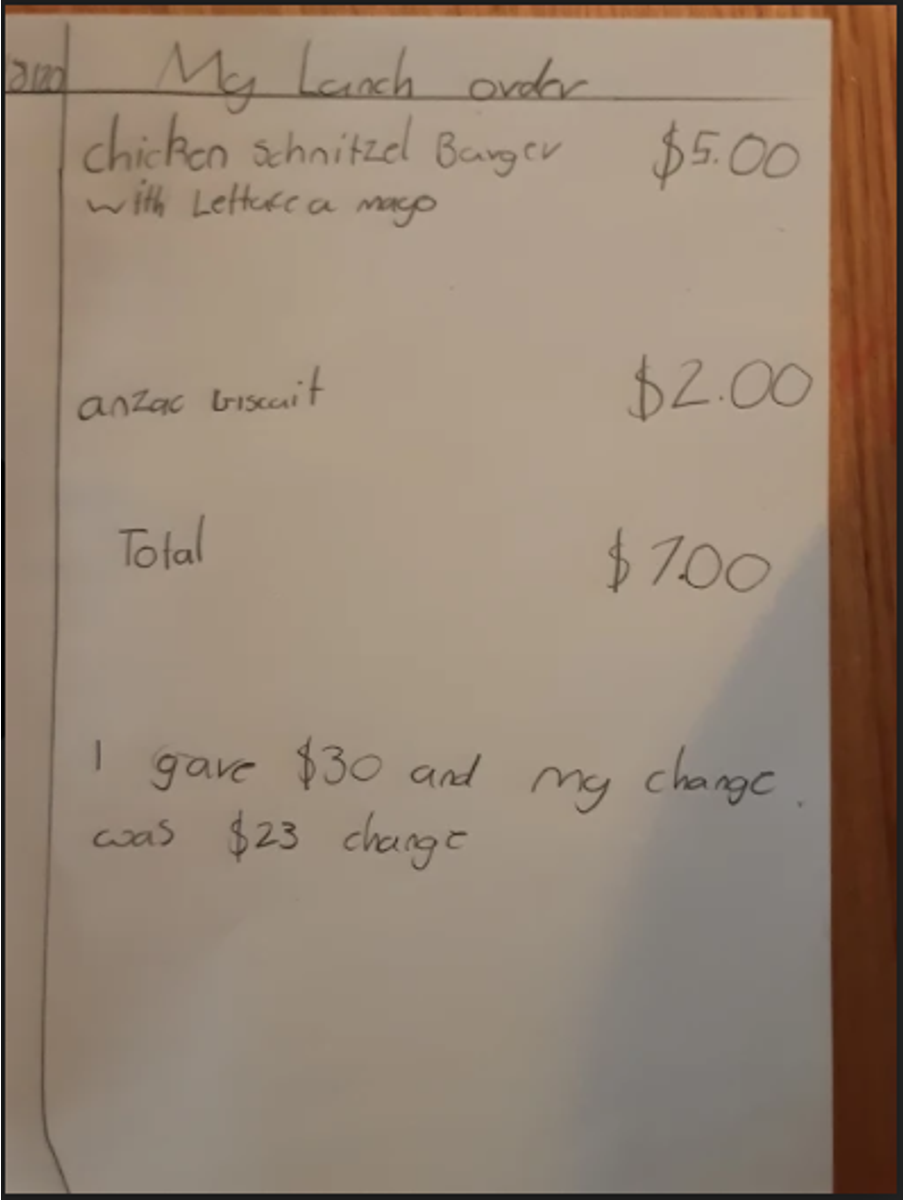 My Lunch order
chicken schnitzel Burger $5.00
with Lettuce a mayo
anzac biscuit $2.00
Total $7.00
I gave $30 and my change.
was $23 change